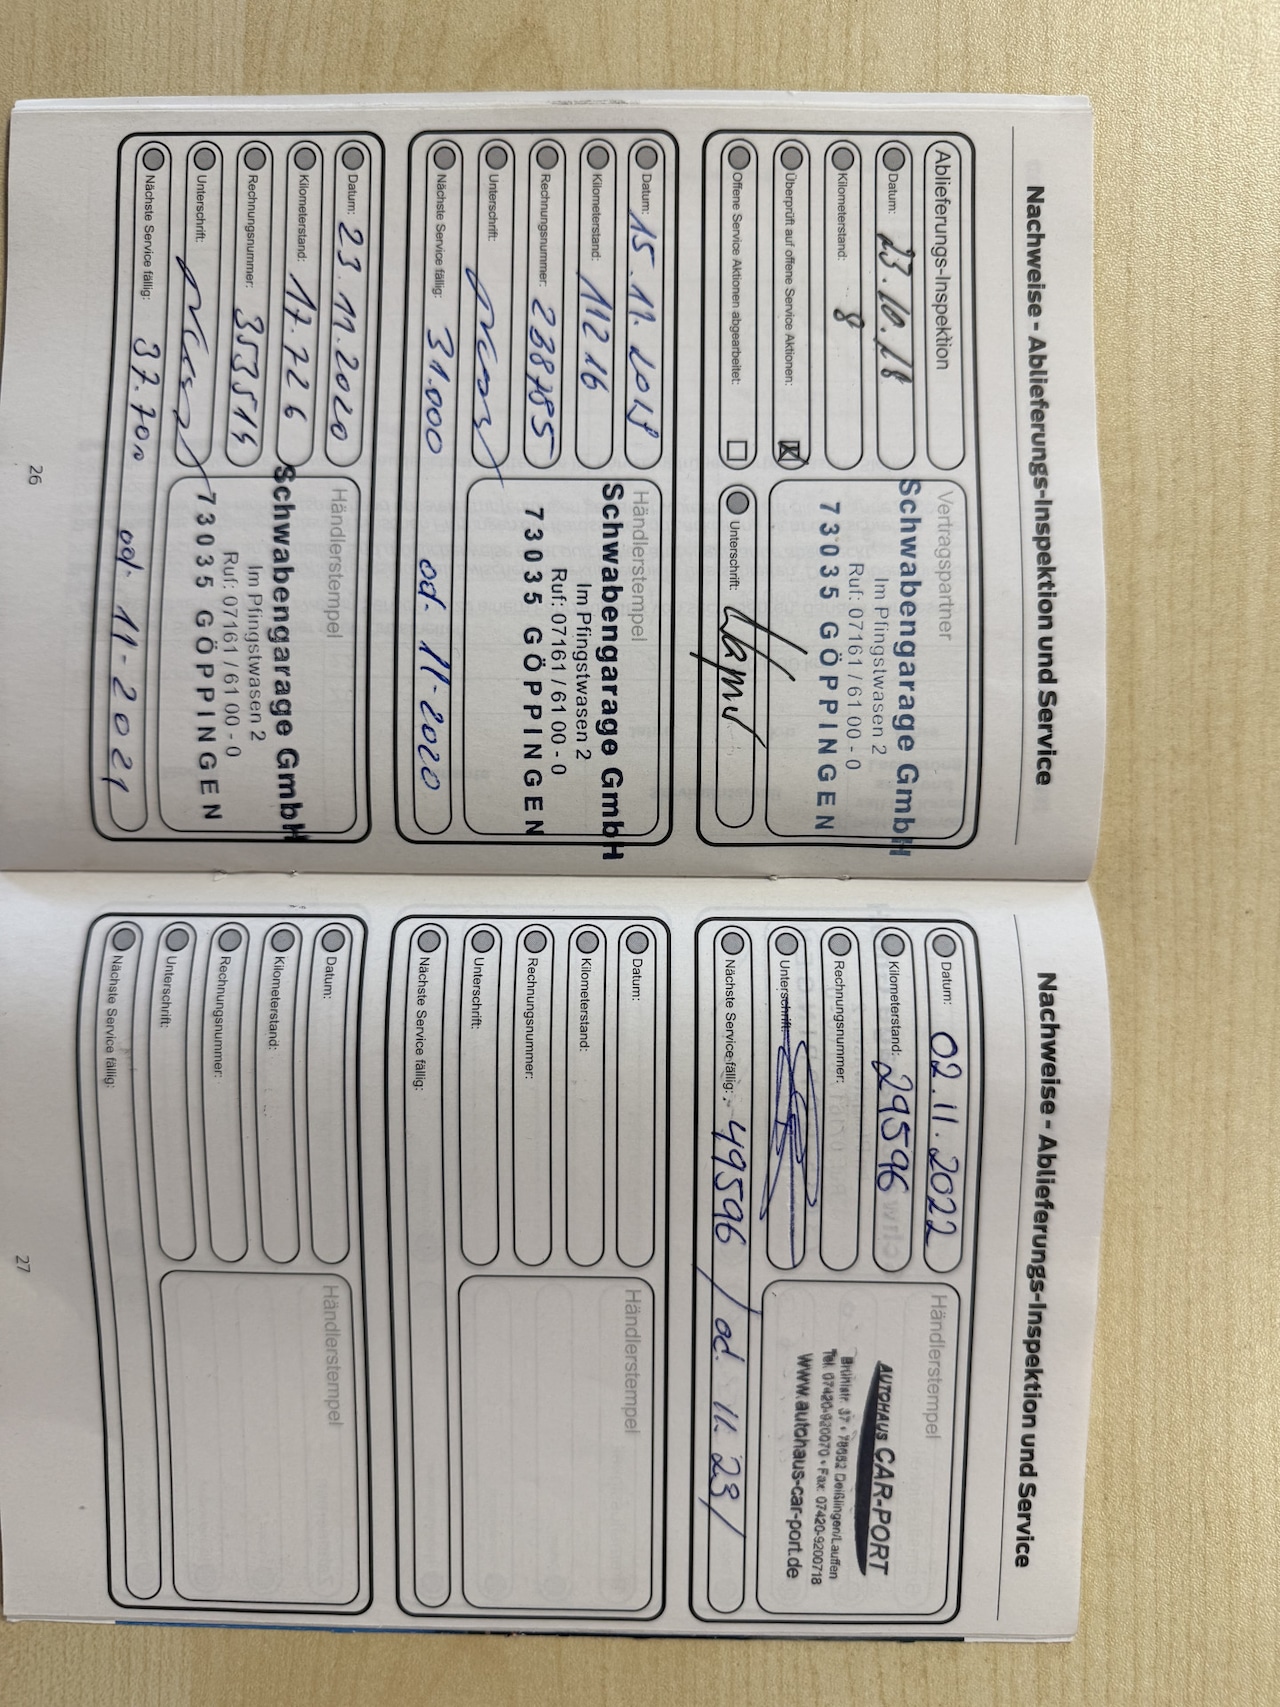 Nachweise - Ablieferungs-Inspektion und Service
Ablieferungs-Inspektion
Datum: 23.10.18
Kilometerstand: 8
Überprüft auf offene Service Aktionen: ☒
Offene Service Aktionen abgearbeitet: ☐
Vertragspartner
Schwabengarage GmbH
Im Pfingstwasen 2
Ruf: 07161 / 61 00 - 0
73035 GÖPPINGEN
Unterschrift:
Datum: 15.11.2019
Kilometerstand: 11216
Rechnungsnummer: 238785
Unterschrift:
Händlerstempel
Schwabengarage GmbH
Im Pfingstwasen 2
Ruf: 07161 / 61 00 - 0
73035 GÖPPINGEN
Nächste Service fällig: 31.000 od. 11-2020
Datum: 23.11.2020
Kilometerstand: 17.726
Rechnungsnummer: 353514
Unterschrift:
Händlerstempel
Schwabengarage GmbH
Im Pfingstwasen 2
Ruf: 07161 / 61 00 - 0
73035 GÖPPINGEN
Nächste Service fällig: 37.700 od. 11-2021
26
Nachweise - Ablieferungs-Inspektion und Service
Datum: 02.11.2022
Kilometerstand: 29596
Rechnungsnummer:
Unterschrift:
Händlerstempel
AUTOHAUS CAR-PORT
Brühlstr. 37 • 78652 Deißlingen/Lauffen
Tel. 07420-920070 • Fax: 07420-9200718
www.autohaus-car-port.de
Nächste Service fällig: 49596 / od. 11.23/
Datum:
Kilometerstand:
Rechnungsnummer:
Unterschrift:
Händlerstempel
Nächste Service fällig:
Datum:
Kilometerstand:
Rechnungsnummer:
Unterschrift:
Händlerstempel
Nächste Service fällig:
27